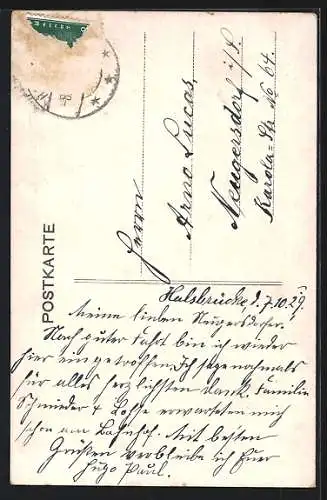 POSTKARTE
Herrn
Arno Lucas,
Neugersdorf i/S.
Karola-Str No 64.
Halsbrücke, d. 7.10.29.
Meine lieben Neugersdorfer.
Nach guter Fahrt bin ich wieder
hier eingetroffen. Ich sage nochmals
für alles herzlichsten Dank. Familie
Schnieder & Lohse erwarteten mich
schon am Bahnhof. Mit besten
Grüßen verbleibe ich Euer
Hugo Paul.